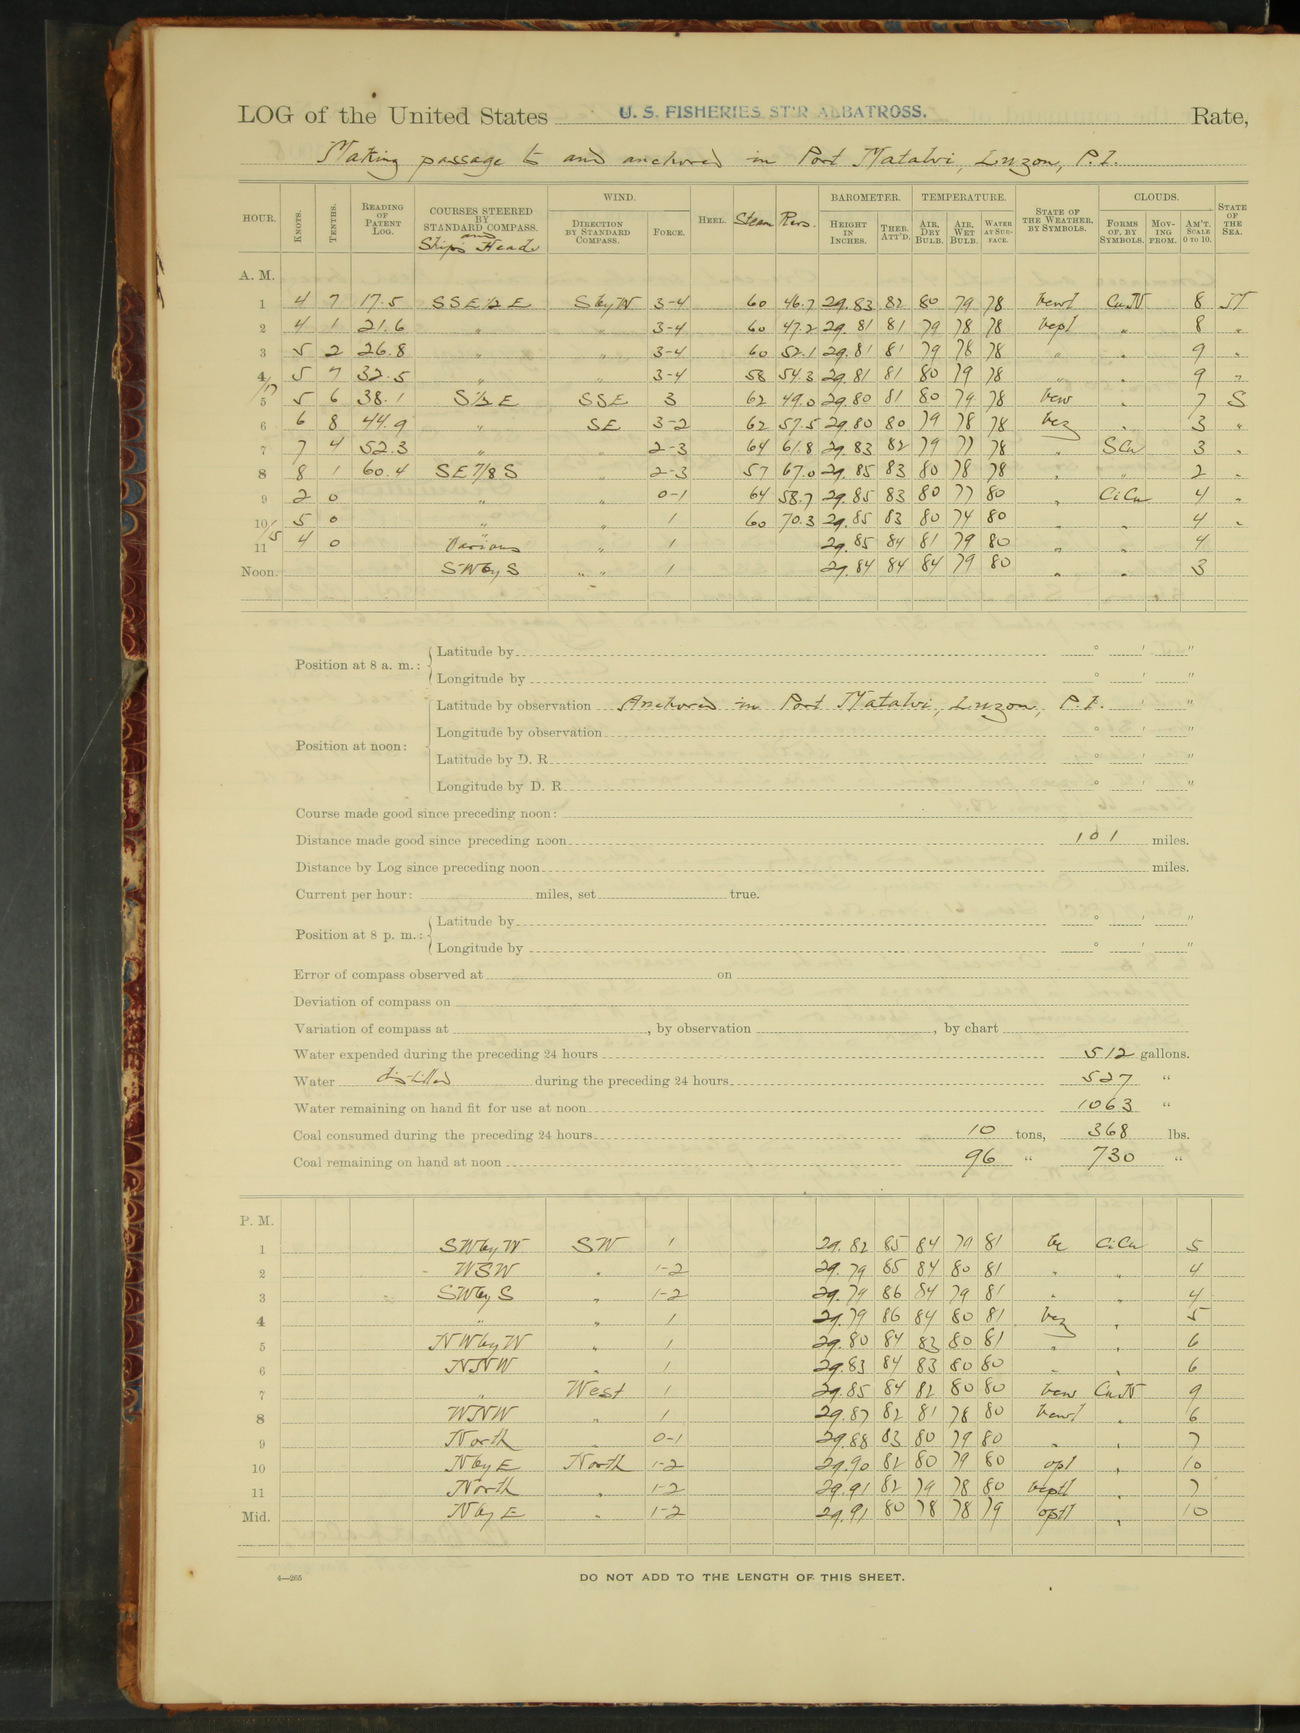 LOG of the United States U. S. FISHERIES ST'R ALBATROSS. Rate,
Making passage to and anchored in Port Matalvi, Luzon, P.I.
HOUR. KNOTS. TENTHS. READING OF PATENT LOG. COURSES STEERED BY STANDARD COMPASS. and Ship's Heads WIND. DIRECTION BY STANDARD COMPASS. FORCE. HEEL. Steam Revs. BAROMETER. HEIGHT IN INCHES. THER. ATT'D. TEMPERATURE. AIR, DRY BULB. AIR, WET BULB. WATER AT SURFACE. STATE OF THE WEATHER, BY SYMBOLS. CLOUDS. FORMS OF, BY SYMBOLS. MOVING FROM. AM'T. SCALE 0 TO 10. STATE OF THE SEA.
A. M.
1 4 7 17.5 SSE½E SbyW 3-4 60 46.7 29.83 82 80 79 78 Cu.N 8
2 4 1 21.6 " " 3-4 60 47.2 29.81 81 79 78 78 " 8 "
3 5 2 26.8 " " 3-4 60 52.1 29.81 81 79 78 78 " " 9 "
4 5 7 32.5 " " 3-4 58 54.3 29.81 81 80 79 78 " " 9 "
5 5 6 38.1 S½E SSE 3 62 49.0 29.80 81 80 79 78 " 7 S
6 6 8 44.9 " SE 3-2 62 57.5 29.80 80 79 78 78 bcz " 3 "
7 7 4 52.3 " " 2-3 64 61.8 29.83 82 79 77 78 " SCu 3 "
8 8 1 60.4 SE7/8S " 2-3 57 67.0 29.85 83 80 78 78 " " 2 "
9 2 0 " " 0-1 64 58.7 29.85 83 80 77 80 " CiCu 4 "
10 5 0 " " 1 60 70.3 29.85 83 80 74 80 " " 4 "
11 4 0 Various " 1 29.85 84 81 79 80 " " 4
Noon. SWbyS " " 1 29.84 84 84 79 80 " " 3
Position at 8 a. m.: Latitude by ° ′ ″
Longitude by ° ′ ″
Position at noon: Latitude by observation Anchored in Port Matalvi, Luzon, P.I. ′ ″
Longitude by observation ° ′ ″
Latitude by D. R. ° ′ ″
Longitude by D. R. ° ′ ″
Course made good since preceding noon:
Distance made good since preceding noon 101 miles.
Distance by Log since preceding noon miles.
Current per hour: miles, set true.
Position at 8 p. m.: Latitude by ° ′ ″
Longitude by ° ′ ″
Error of compass observed at on
Deviation of compass on
Variation of compass at , by observation , by chart
Water expended during the preceding 24 hours 512 gallons.
Water distilled during the preceding 24 hours 527 "
Water remaining on hand fit for use at noon 1063 "
Coal consumed during the preceding 24 hours 10 tons, 368 lbs.
Coal remaining on hand at noon 96 " 730 "
P. M.
1 SWbyW SW 1 29.82 85 84 79 81 bc CiCu 5
2 WSW " 1-2 29.79 85 84 80 81 " " 4
3 SWbyS " 1-2 29.79 86 84 79 81 " " 4
4 " " 1 29.79 86 84 80 81 bcz " 5
5 NWbyW " 1 29.80 84 83 80 81 " " 6
6 NNW " 1 29.83 84 83 80 80 " " 6
7 " West 1 29.85 84 82 80 80 Cu.N 9
8 WNW " 1 29.87 82 81 78 80 " 6
9 North " 0-1 29.88 83 80 79 80 " " 7
10 NbyE North 1-2 29.90 82 80 79 80 " 10
11 North " 1-2 29.91 82 79 78 80 " 7
Mid. NbyE " 1-2 29.91 80 78 78 79 " 10
4—265 DO NOT ADD TO THE LENGTH OF THIS SHEET.